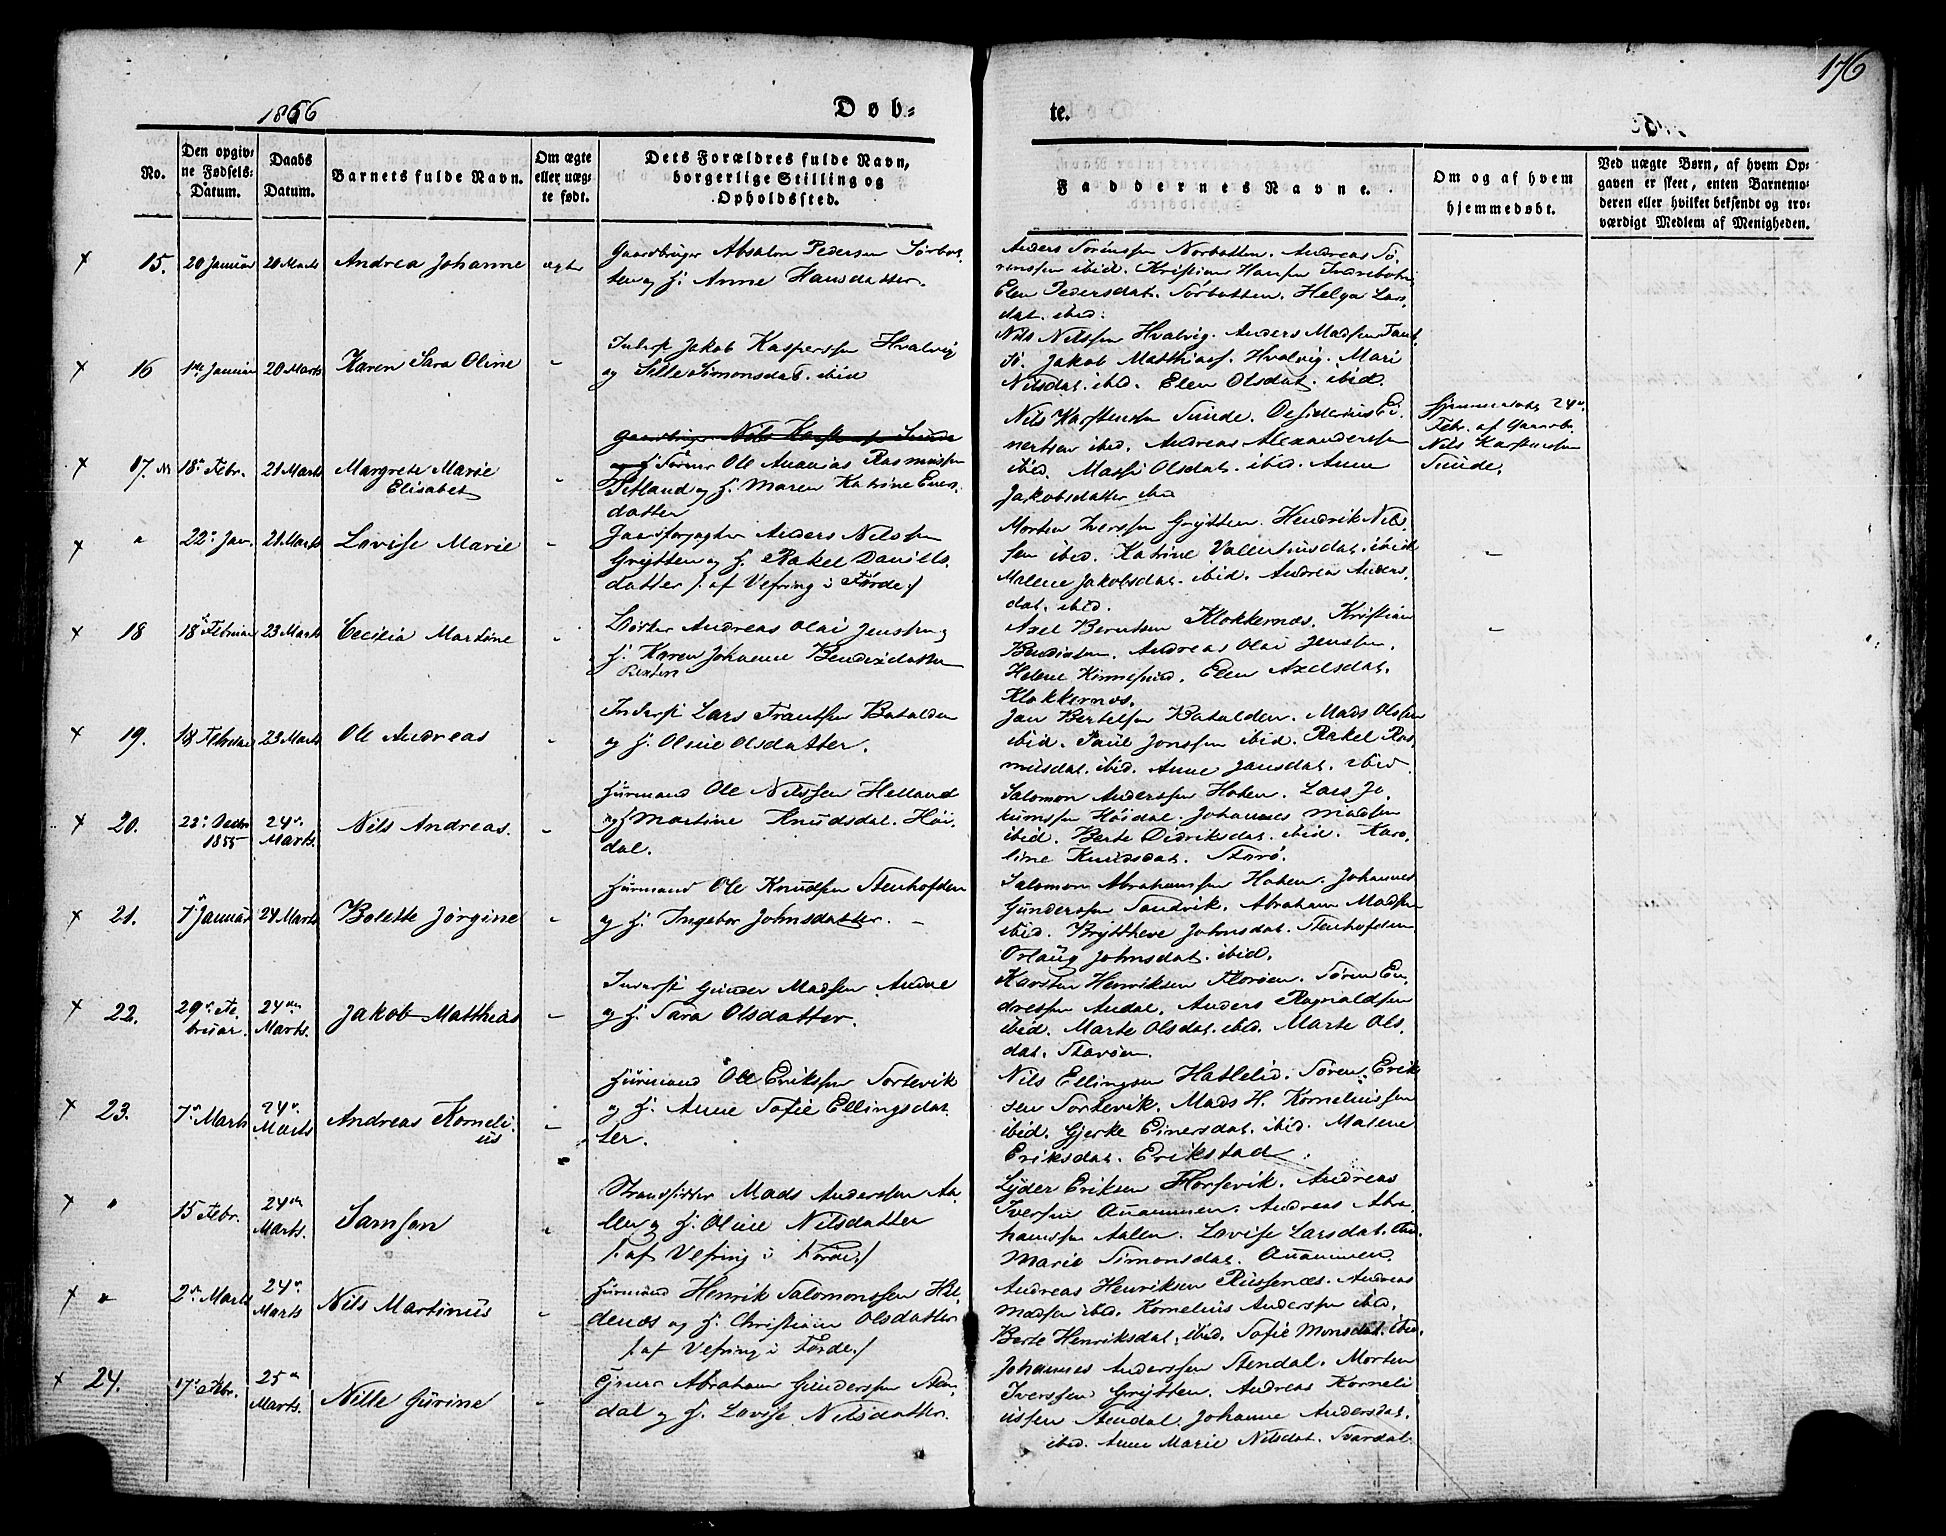 176
1856
Døb=
te.
No.
Den opgiv=
ne Fødsels=
Datum.
Daabs
Datum.
Barnets fulde Navn.
Om ægte
eller uæg=
te født.
Dets Forældres fulde Navn,
borgerlige Stilling og
Opholdssted.
Faddernes Navne.
Om og af hvem
hjemmedøbt.
Ved uægte Børn, af hvem Op=
gaven er skeet, enten Barnemo=
deren eller hvilket bekjendt og tro=
værdigt Medlem af Menigheden.
15.
20 Januar
20 Marts
Andrea Johanne
ægte
Gaardbruger Absalon Pedersen Sørbot,
ten og H. Anne Hansdatter.
Anders Sørenssen Norbotten. Andreas Sø,
renssen ibid. Kristian Hansen
Elen Pedersdat. Sørbotten. Helga Lars,
dat. ibid.
16
Januar
20 Marts
Karen Sara Oline
Inderst Jakob Kasperssen Hvalvig
og Sille Simonsdat. ibid
Nils Nilssen Hvalvig. Anders Madsen
Jakob Matthiass. Hvalvig. Mari
Nilsdat. ibid. Elen Olsdat. ibid.
17.
18 Febr.
21 Marts
Margrete Marie
Elisabet
Gaardbruger Nils Karstenssen Sunde
og H. Ole Ananias Rasmussen
og H. Maren Katrine Ener,
datter
Nils Karstenssen Sunde. Desiderius Ei,
nertsen ibid. Andreas Alexanderssen
ibid. Massi Olsdat. ibid. Anne
Jakobsdatter ibid
Hjemmedøbt 24
Febr. af Gaardb.
Nils Karstenssen
Sunde.
22 Jan.
21 Marts
Lovise Marie
Gaardforpagter Anders Nilssen
Grytten og H. Rakel Daniels,
datter /: af Vefring i Førde :/
Morten Iverssen Grytten. Hendrik Nils,
sen ibid. Katrine Valentinsdat. ibid
Malene Jakobsdat. ibid. Andrea Anders,
dat. ibid.
18
18 Februar
23 Marts
Cecilia Martine
Andreas Olai Jenssen og
H. Karen Johanne Bendixdatter
Axel Berntsen Klokkernæs. Kristian
Bendixsen. Andreas Olai Jenssen.
Helene Kinnesund. Elen Axelsdat.
Klokkernæs.
19.
18 Februar
23 Marts
Ole Andreas
Inderst Lars Frantssen Batalden
og H. Oline Olsdatter.
Jan Bertelsen Batalden. Mads Olsen
ibid. Paul Jonssen ibid. Rakel Ras
musdat. ibid. Anne Jansdat. ibid.
20.
1855
24
Marts.
Nils Andreas.
Huusmand Ole Nilssen Helland
og H Martine Knudsdat. Høi,
dal.
Salomon Anderssen Hoten. Lars Jo,
kumssen Høidal. Johannes Madsen
ibid. Berte Didriksdat. ibid. Karo,
line Knudsdat. Storø.
21.
7 Januar
24 Marts
Bolette Jørgine
Huusmand Ole Knudsen Stenhofden
og H. Ingebor Johnsdatter.
Salomon Abrahamssen Hoten. Johannes
Gunderssen Sandvik. Abraham Madsen
ibid. Bryttheve Johnsdat. Stenhofden
Orlaug Johnsdat. ibid.
22.
29 Fe,
bruar.
24
Marts.
Jakob Matthias
Inderst Gunder Madsen Andal
og H. Sara Olsdatter.
Karsten Henriksen Florøen. Søren En,
dressen Andal. Anders Ragnaldsen
ibid. Marte Olsdat. ibid. Marte Ols,
dat. Storøen.
23.
7 Marts
24
Marts
Andreas Korneli,
us
Huusmand Ole Erikssen Sortevik
og H. Anne Sofie Ellingsdat,
ter.
Nils Ellingsen Hatlelid. Søren Erik
sen Sortevik. Mads H. Korneliussen
ibid. Gjerke Einersdat. ibid. Malene
Eriksdat. Erikstad.
15 Febr.
24
Marts.
Samson
Strandsidder Mads Anderssen Aa,
len og H. Oline Nilsdatter
/: af Vefring i Førde :/
Lyder Eriksen Horsevik. Andreas
Iversen Anammen. Andreas Abra
hamssen Aalen. Lovise Larsdat.
Marie Simonsdat. Anammen
2 Marts
24
Marts
Nils Martinus
Huusmand Henrik Salomonssen Hel,
denæs og H. Christiane Olsdatter
/: af Vefring i Førde :/
Andreas Henriksen Russenæs. Andreas
Madsen ibid. Kornelius Anderssen ibid.
Berte Henriksdat. ibid. Sofie Monsdat. ibid.
24.
17 Febr.
25
Marts.
Nille Gurine
Abraham Gunderssen Sten,
dal og H. Lovise Nilsdatter.
Johannes Anderssen Stendal. Morten
Iverssen Grytten. Andreas Korneli
ussen Stendal. Johanne Andersdat.
ibid. Anne Marie Nilsdat. Svardal